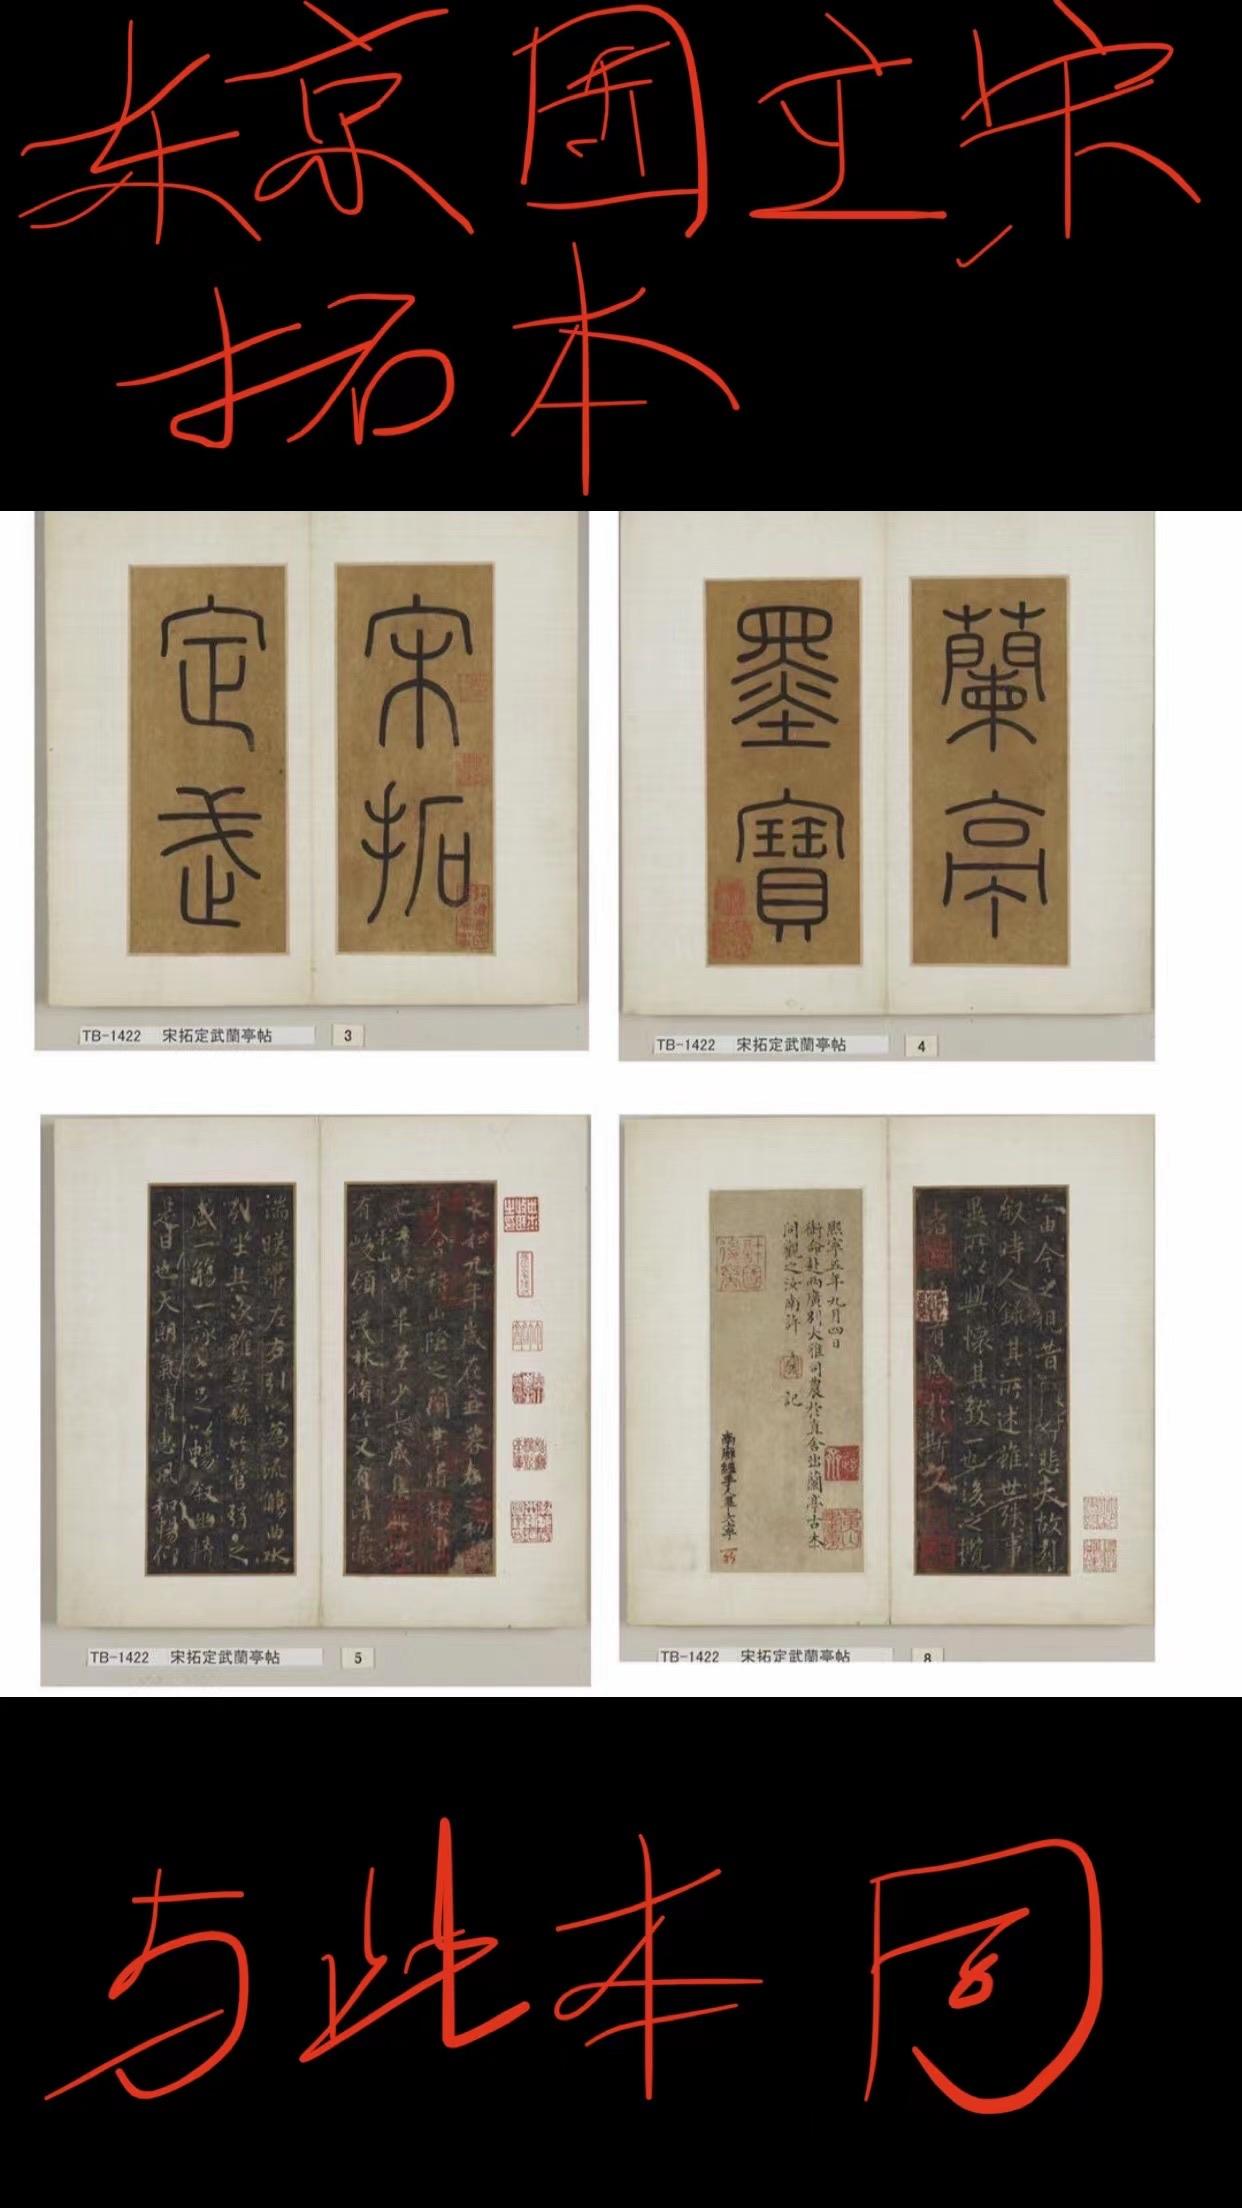 东京國立宋
拓本
宋拓
定武
蘭亭
墨寶
TB-1422 宋拓定武蘭亭帖 3
TB-1422 宋拓定武蘭亭帖 4
永和九年歲在癸丑暮春之初
于會稽山陰之蘭亭脩禊
群賢畢至少長咸集
有峻領茂林脩竹又有清流激
湍暎帶左右引以為流觴曲水
列坐其次雖無絲竹管弦之
盛一觴一詠亦足以暢敘幽情
是日也天朗氣清惠風和暢仰
TB-1422 宋拓定武蘭亭帖 5
由今之視昔悲夫故列
敘時人錄其所述雖世殊事
異所以興懷其致一也後之攬
者有感於斯文
熙寧五年九月四日
衔命赴兩廣別大雅司農於直舍出蘭亭古本
同觀之汝南許 記
TB-1422 宋拓定武蘭亭帖 8
与此本同